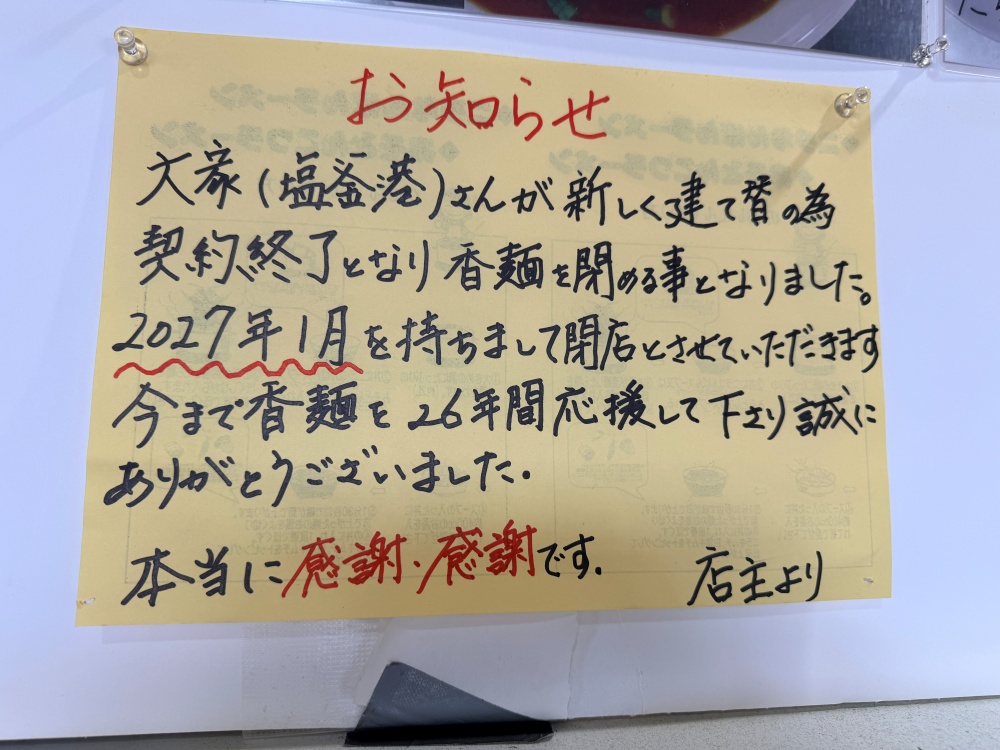 お知らせ
大家(塩釜港)さんが新しく建て替の為
契約終了となり香麺を閉める事となりました。
2027年1月を持ちまして閉店とさせていただきます
今まで香麺を26年間応援して下さり誠に
ありがとうございました.
本当に感謝.感謝です.
店主より